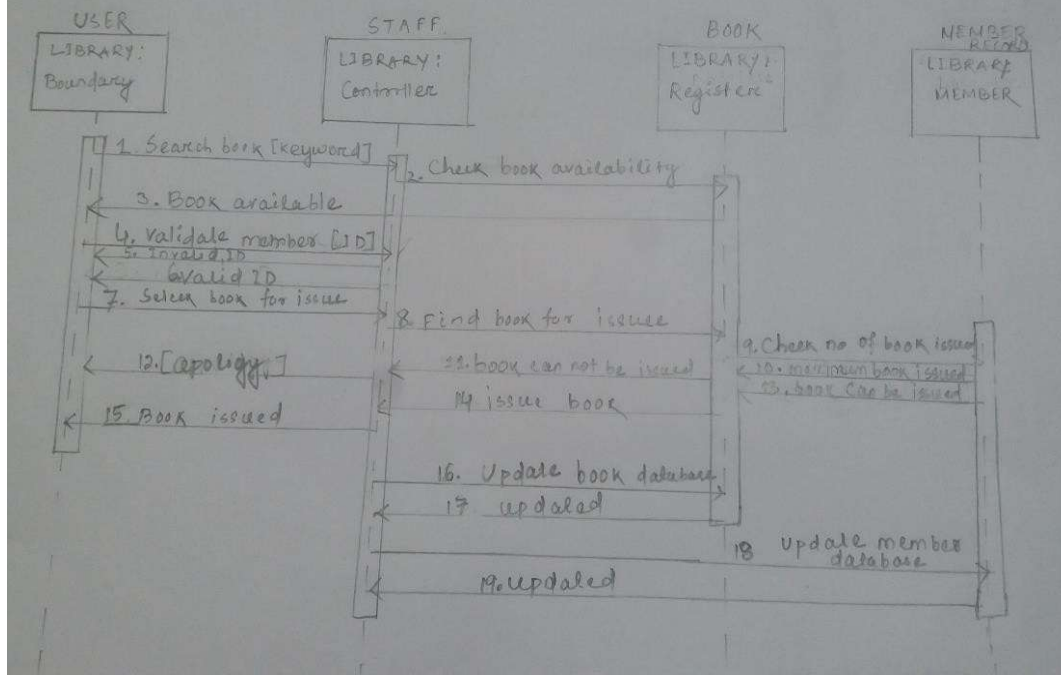 USER
LIBRARY:
Boundary
STAFF
LIBRARY:
Controller
BOOK
LIBRARY:
Register
MEMBER
RECORD
LIBRARY
MEMBER
1. Search book [keyword]
2. Check book availability
3. Book available
4. validate member [ID]
5. Invalid ID
6 valid ID
7. Select book for issue
8. Find book for issue
9. Check no of book issued
10. maximum book issued
11. book can not be issued
12. [apoligy,]
13. book can be issued
14 issue book
15. Book issued
16. Update book database
17 updated
18 update member
database
19. updated